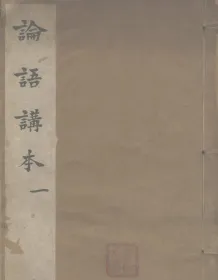 論語講本一